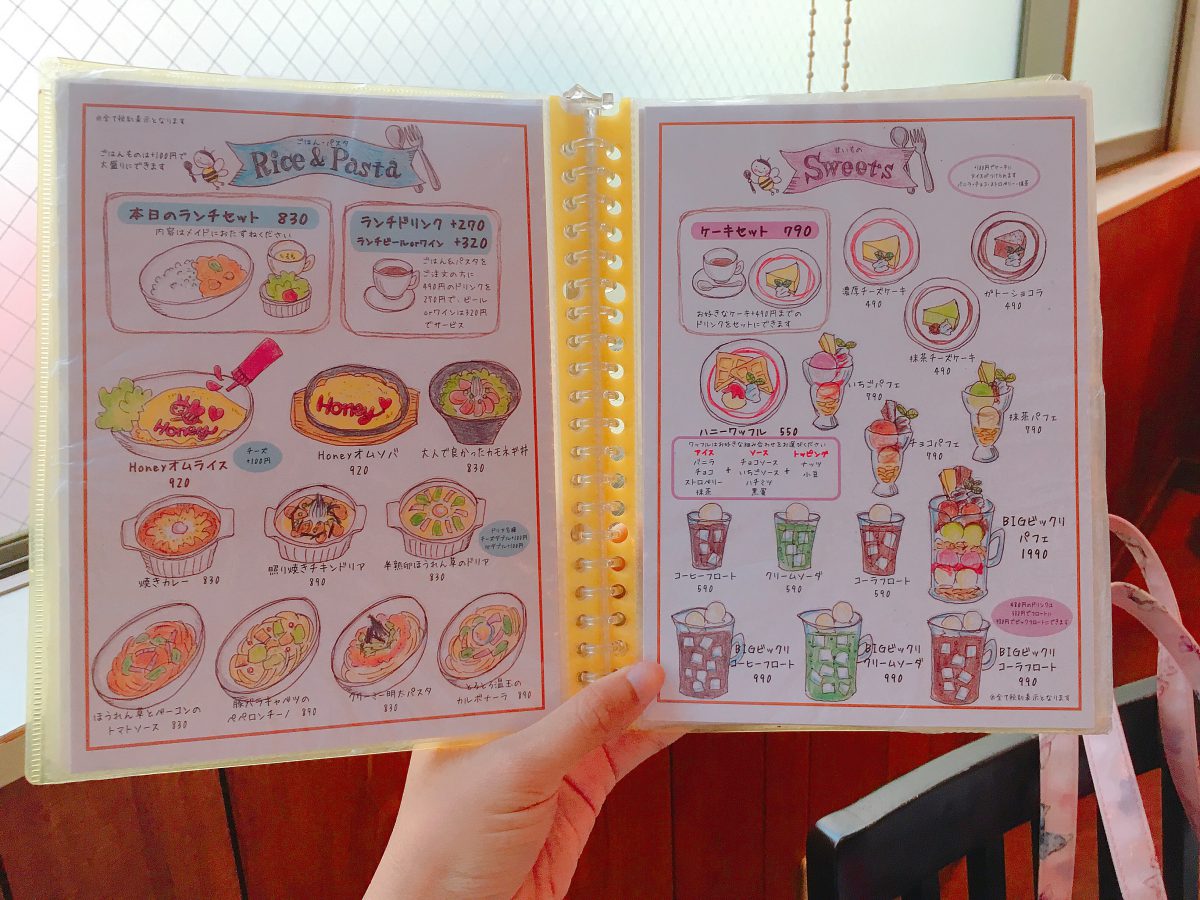 ※全て税別表示となります
ごはん・パスタ
Rice & Pasta
ごはんものは+100円で
大盛りにできます
本日のランチセット 830
内容はメイドにおたずねください
ランチドリンク +270
ランチビールorワイン +320
ごはん&パスタを
ご注文の方に
490円のドリンクを
270円で、ビール
orワインは320円
でサービス
Honey
Honeyオムライス
920
チーズ
+100円
Honey
Honeyオムソバ
920
大人で良かったカモネギ丼
830
焼きカレー 830
照り焼きチキンドリア
890
半熟卵ほうれん草のドリア
830
ほうれん草とベーコンの
トマトソース 830
豚バラキャベツの
ペペロンチーノ 890
クリーミー明太パスタ
830
とろとろ温玉の
カルボナーラ 890
せいもの
Sweets
ケーキセット 790
お好きなケーキ+490円までの
ドリンクをセットにできます
濃厚チーズケーキ
490
ガトーショコラ
490
抹茶チーズケーキ
490
ハニーワッフル 550
いちごパフェ
790
チョコパフェ
790
抹茶パフェ
790
ワッフルはお好きな組み合わせをお選びください
アイス ソース トッピング
バニラ チョコソース ナッツ
チョコ + いちごソース + 小豆
ストロベリー ハチミツ
抹茶 黒蜜
BIGビックリ
パフェ
1990
コーヒーフロート
590
クリームソーダ
590
コーラフロート
590
BIGビックリ
コーヒーフロート
990
BIGビックリ
クリームソーダ
990
BIGビックリ
コーラフロート
990
※全て税別表示となります